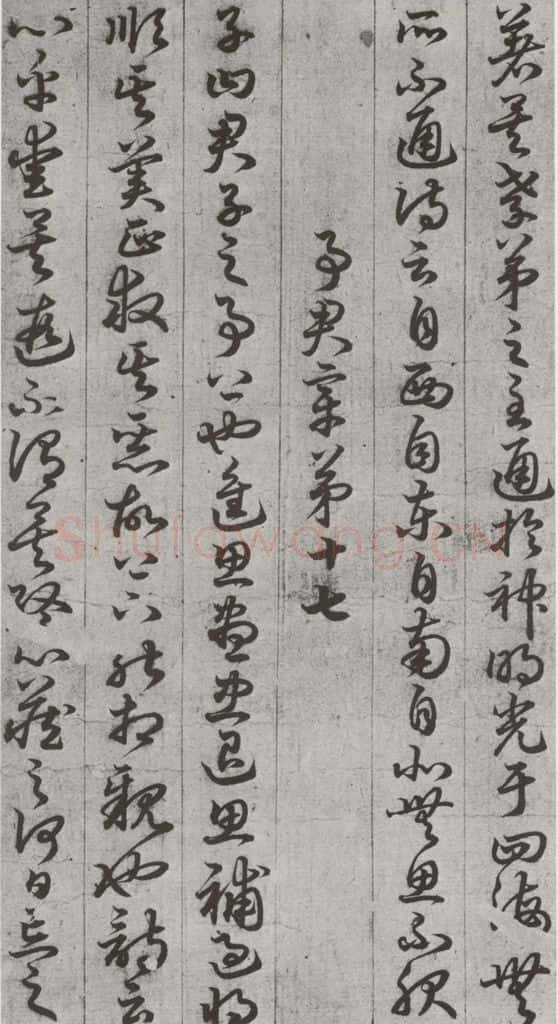 著矣孝弟之至通於神明光于四海無
所不通詩云自西自東自南自北無思不服
事君章第十七
子曰君子之事上也進思盡忠退思補過將
順其美匡救其惡故上下能相親也詩云
心乎愛矣遐不謂矣心藏之何日忘之
Shufawang.CN